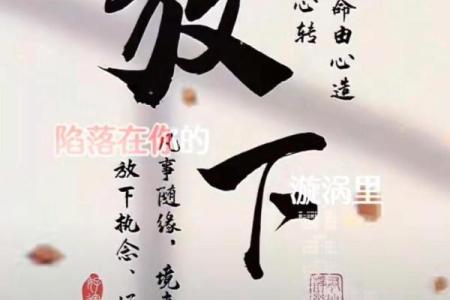 命由心造
心转
放下
凡事隨缘，境
放下执念、
陷落在你的
漩涡里